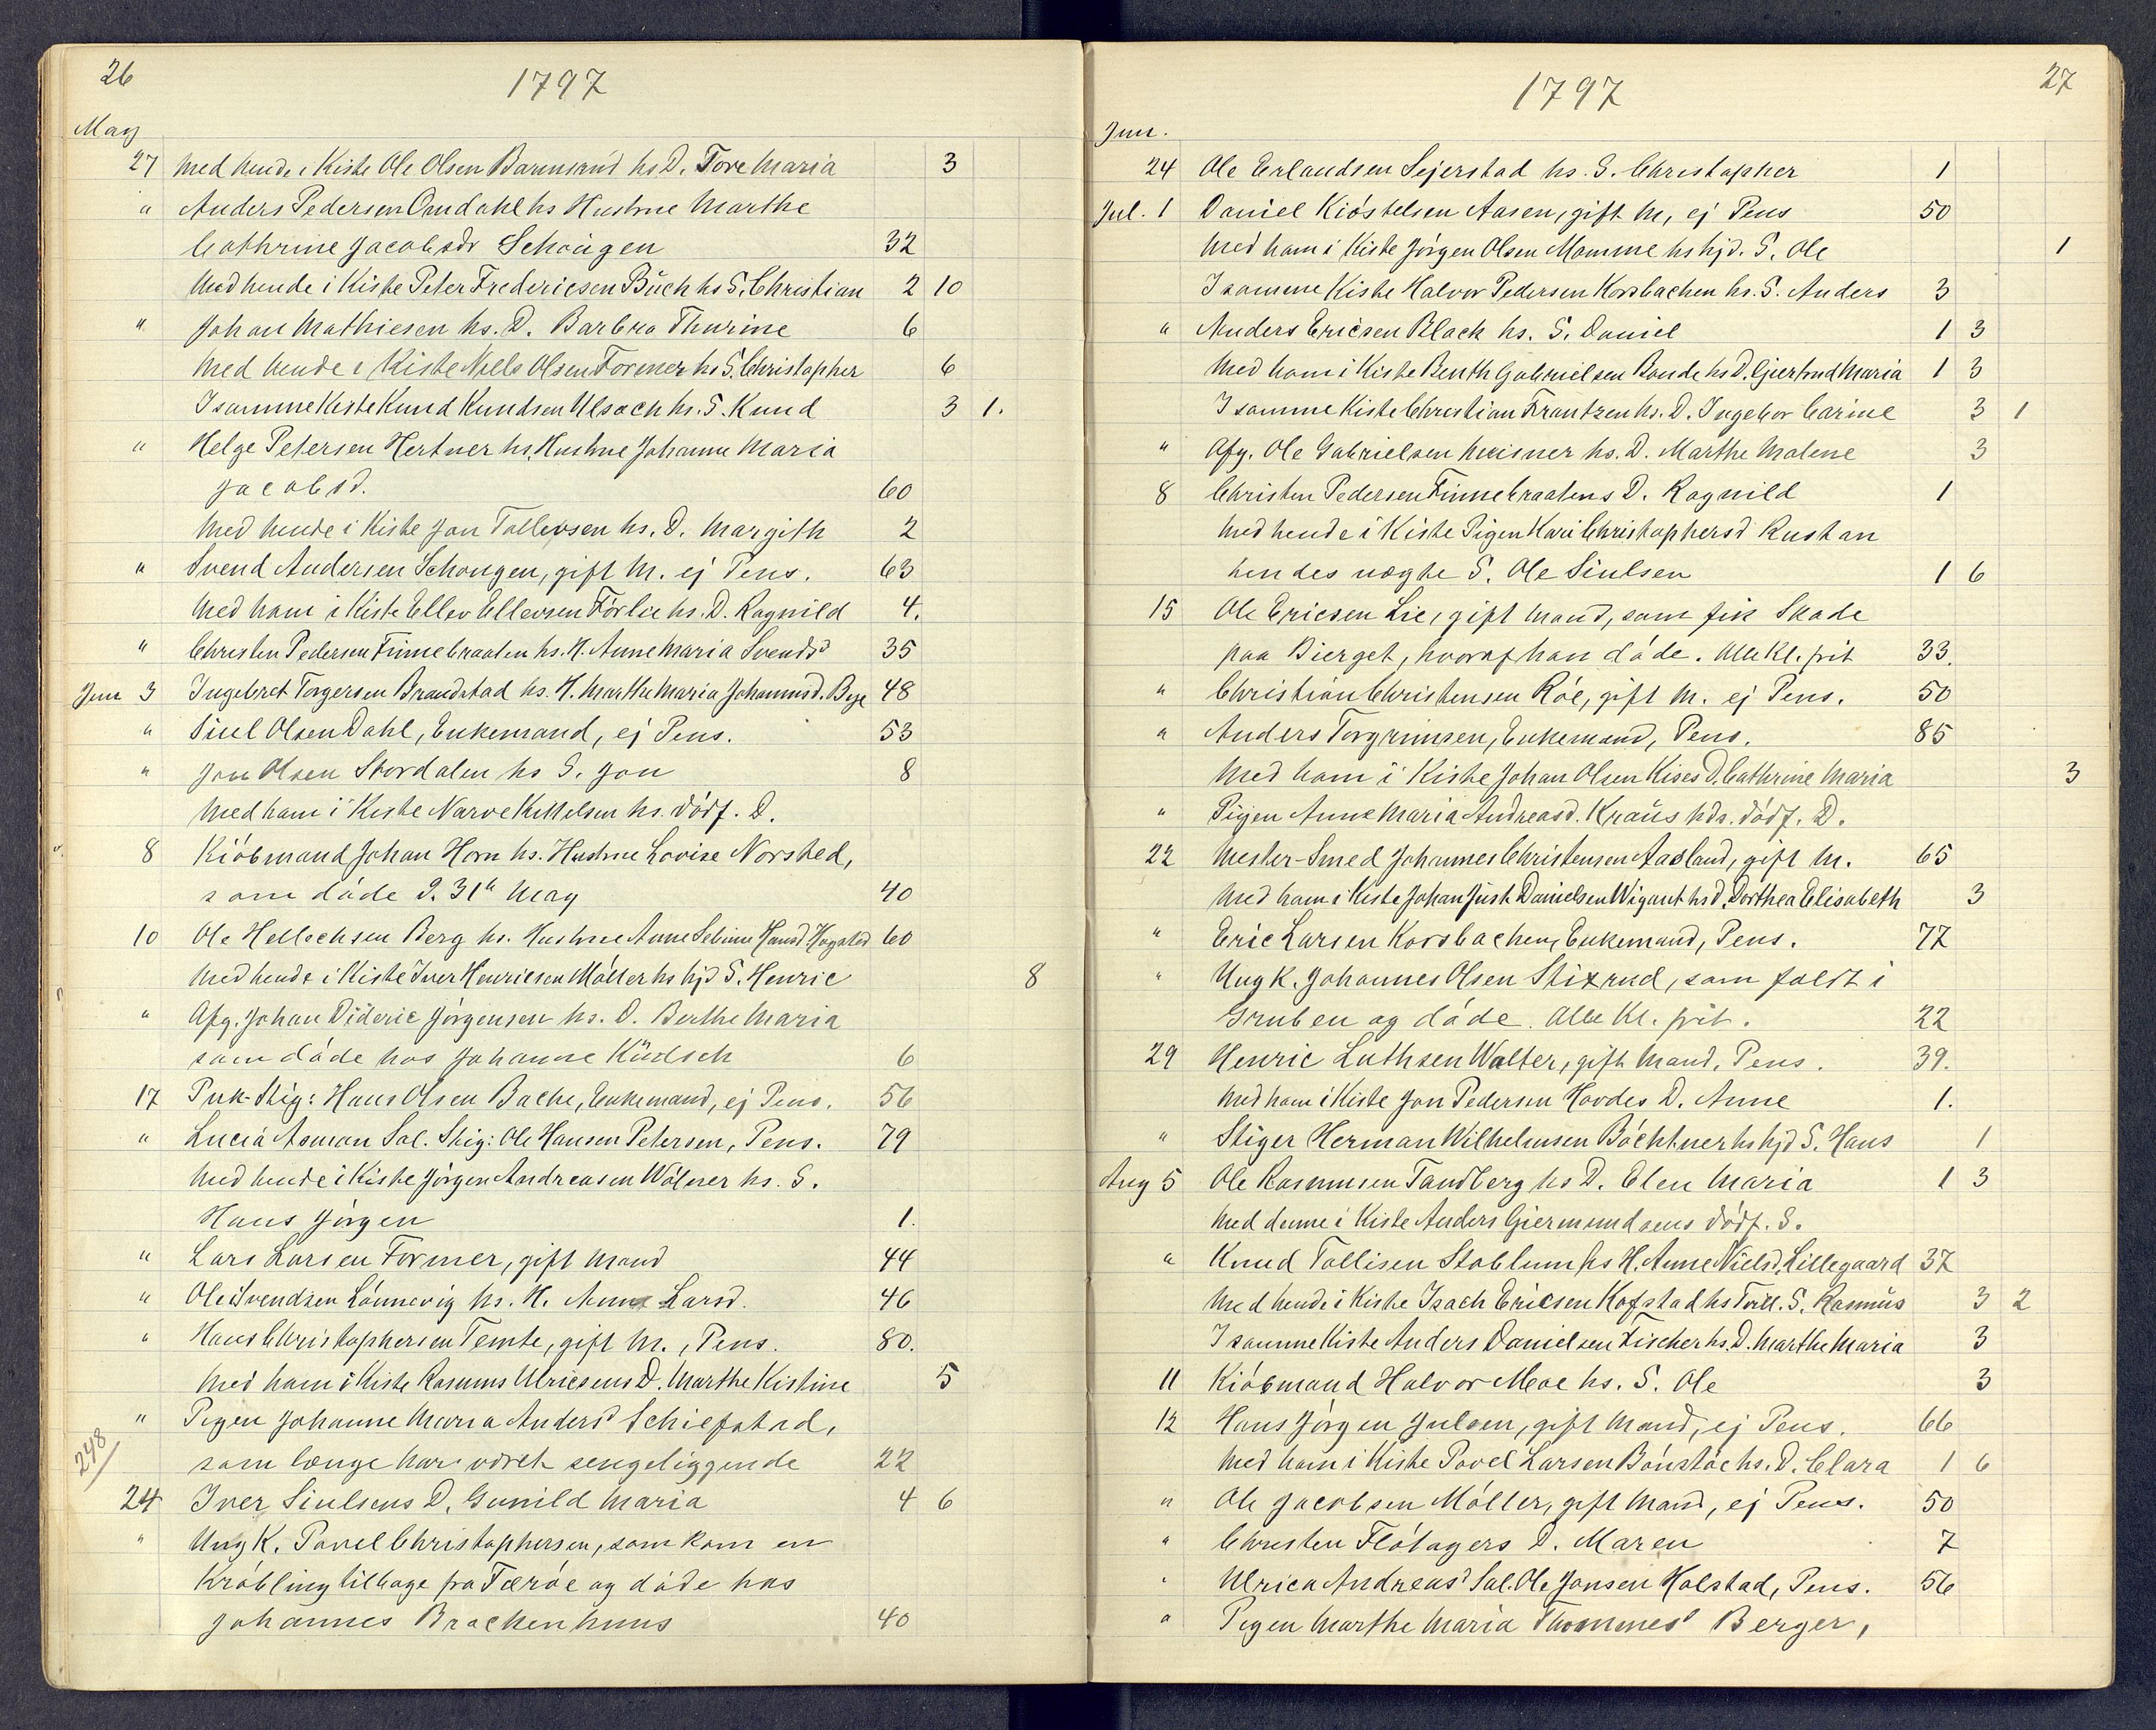 26
1797
May
27 Med hende i Kiste Ole Olsen Barmsrud hs D. Tore Maria 3
" Anders Pedersen Omdahl hs Hustrue Marthe
Cathrine Jacobsdr Schougen 32
Med hende i Kiste Peter Fredericsen Büch hs S. Christian 2 10
" Johan Mathiesen hs. D. Barbra Thurine 6
Med hende i Kiste Niels Olsen Former hs S. Christopher 6
I samme Kiste Knud Knudsen Ulsach hs. S. Knud 3 1.
" Helge Petersen Hertner hs. Hustrue Johanne Maria
Jacobsd. 60
Med hende i Kiste Jon Tollevsen hs. D. Margith 2
" Svend Andersen Schougen, gift M. ej Pens. 63
Med ham i Kiste Ellev Ellevsen Förlie hs. D. Ragnild 4.
" Christen Pedersen Finnebraaten hs. H. Anne Maria Svendsd 35
Jun 3 Ingebret Torgersen Brandstad hs. H. Marthe Maria Johannesd. Bye 48
" Siul Olsen Dahl, Enkemand, ej Pens. 53
" Jon Olsen Stordalen hs S. Jon 8
Med ham i Kiste Narve Kittelsen hs. dödf. D.
8 Kiöbmand Johan Horn hs. Hustrue Lovise Norsted,
som döde d. 31te May 40
10 Ole Hellechsen Berg hs. Hustrue Anne Sebine Hansd Hogstad 60
Med hende i Kiste Iver Henricsen Möller hs hjd S. Henric 8
" Afg. Johan Dideric Jörgensen hs. D. Berthe Maria
som döde hos Johanne Küdsch 6
17 Puk-Stig: Hans Olsen Bache, Enkemand, ej Pens. 56
" Lucia Asman Sal. Stig: Ole Hansen Petersen, Pens. 79
Med hende i Kiste Jörgen Andreasen Wölner hs. S.
Hans Jörgen 1.
" Lars Larsen Former, gift Mand 44
" Ole Svendsen Lönnevig hs. H. Anne Larsd. 46
" Hans Christophersen Temte, gift M., Pens. 80.
Med ham i Kiste Rasmus Ulricsens D. Marthe Kistine 5
" Pigen Johanne Maria Andersd Schiefstad,
som længe har været sengeliggende 22
248
24 Iver Siulsens D. Gunild Maria 4 6
" Ung K. Povel Christophersen, som kom en
Kröbling tilbage fra Færöe og döde hos
Johannes Brackenhuus 40
27
1797
Jun.
24 Ole Erlandsen Sejerstad hs. S. Christopher 1
Jul. 1 Daniel Kiöstelsen Aasen, gift M, ej Pens 50
Med ham i Kiste Jörgen Olsen Momme hs hjd. S. Ole 1
I samme Kiste Halvor Pedersen Korsbachen hs. S. Anders 3
" Anders Ericsen Black hs. S. Daniel 1 3
Med ham i Kiste Benth Gabrielsen Bonde hs D. Giertrud Maria 1 3
I samme Kiste Christian Frantzen hs. D. Ingebor Carine 3 1
" Afg. Ole Gabrielsen Meisner hs. D. Marthe Malene 3
8 Christen Pedersen Finnebraatens D. Ragnild 1
Med hende i Kiste Pigen Kari Christophersd Rustan
hendes uægte S. Ole Siulsen 1 6
15 Ole Ericsen Lie, gift Mand, som fik Skade
paa Bierget, hvoraf han döde. Alle Kl. frit 33.
" Christian Christensen Röe, gift M. ej Pens. 50
" Anders Torgrimsen, Enkemand, Pens. 85
Med ham i Kiste Johan Olsen Kises D. Cathrine Maria 3
" Pigen Anne Maria Andreasd. Kraüs hds. dödf. D.
22 Mester-Smed Johannes Christensen Aasland, gift M. 65
Med ham i Kiste Johan Just Danielsen Wigant hs D. Dorthea Elisabeth 3
" Eric Larsen Korsbachen, Enkemand, Pens. 77
" Ung K. Johannes Olsen Stixrud, som faldt i
Gruben og döde. Alle Kl. frit. 22
29 Henric Luthsen Walter, gift Mand, Pens. 39.
Med ham i Kiste Jon Pedersen Hovdes D. Anne 1.
" Stiger Herman Wilhelmsen Böchtner hs hjd S. Hans 1
Aug 5 Ole Rasmussen Tandberg hs D. Elen Maria 1 3
Med denne i Kiste Anders Giermundsens dödf. S.
" Knud Tollisen Stoblum hs H. Anne Nielsd. Lillegaard 37
Med hende i Kiste Isach Ericsen Kofstad hs Tvill. S. Rasmüs 3 2
I samme Kiste Anders Danielsen Fischer hs. D. Marthe Maria 3
11 Kiöbmand Halvor Moe hs. S. Ole 3
12 Hans Jörgen Julsen, gift Mand, ej Pens. 66
Med ham i Kiste Povel Larsen Bönstöe hs. D. Clara 1 6
" Ole Jacobsen Möller, gift Mand, ej Pens. 50
" Christen Flötagers D. Maren 7
" Ulrica Andreasd Sal. Ole Jonsen Holstad, Pens. 56
" Pigen Marthe Maria Thommesd Berger,